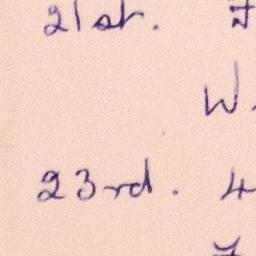 21st.
W.
23rd. 4